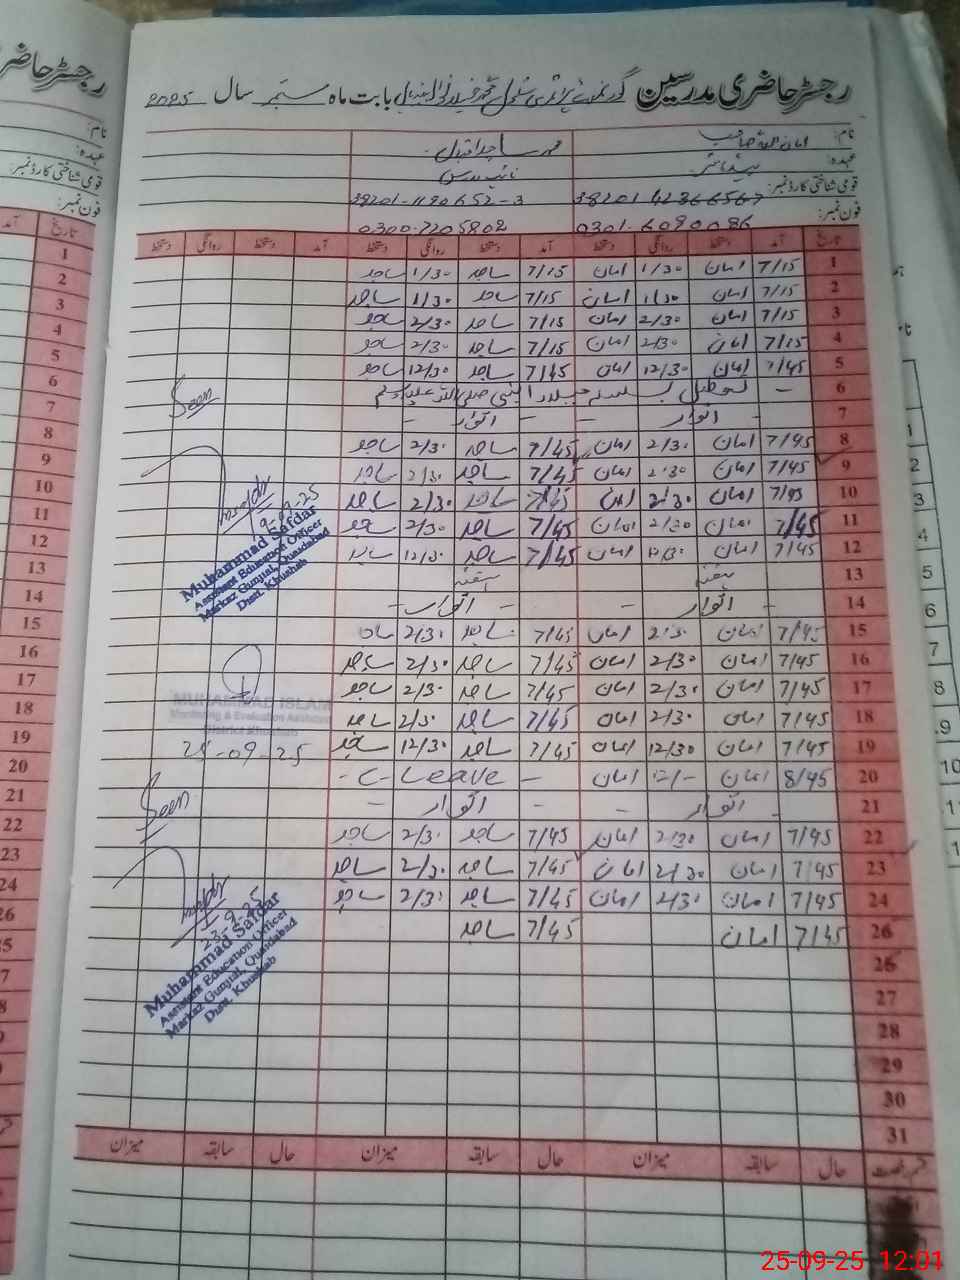 رجسٹر حاضری مدرسین گورنمنٹ پرائمری سکول بابت ماہ ستمبر سال 2025
نام: امان اللہ صاحب ساجد اقبال
عہدہ: ہیڈ ماسٹر نائب مدرس
قومی شناختی کارڈ نمبر: 38201 38201-1190652-3
فون نمبر: 0301-6090086 0300-7205802
تاریخ آمد دستخط روانگی دستخط آمد دستخط روانگی دستخط آمد دستخط روانگی دستخط
1 7/15 امان 1/30 امان 7/15 ساجد 1/30 ساجد
2 7/15 امان 1/30 امان 7/15 ساجد 1/30 ساجد
3 7/15 امان 2/30 امان 7/15 ساجد 2/30 ساجد
4 7/15 امان 2/30 امان 7/15 ساجد 2/30 ساجد
5 7/45 امان 12/30 امان 7/45 ساجد 12/30 ساجد
6 - تعطیل بسلسلہ میلاد النبی صلی اللہ علیہ وسلم
7 - اتوار - - اتوار -
8 7/45 امان 2/30 امان 7/45 ساجد 2/30 ساجد
9 7/45 امان 2/30 امان 7/45 ساجد 2/30 ساجد
10 7/45 امان 2/30 امان 7/45 ساجد 2/30 ساجد
11 7/45 امان 2/30 امان 7/45 ساجد 2/30 ساجد
12 7/45 امان 12/30 امان 7/45 ساجد 12/30 ساجد
13 ہفتہ ہفتہ
14 - اتوار - - اتوار -
15 7/45 امان 2/30 امان 7/45 ساجد 2/30 ساجد
16 7/45 امان 2/30 امان 7/45 ساجد 2/30 ساجد
17 7/45 امان 2/30 امان 7/45 ساجد 2/30 ساجد
18 7/45 امان 2/30 امان 7/45 ساجد 2/30 ساجد
19 7/45 امان 12/30 امان 7/45 ساجد 12/30 ساجد
20 8/45 امان 12/- امان - C-Leave -
21 اتوار - - اتوار -
22 7/45 امان 2/30 امان 7/45 ساجد 2/30 ساجد
23 7/45 امان 2/30 امان 7/45 ساجد 2/30 ساجد
24 7/45 امان 2/30 امان 7/45 ساجد 2/30 ساجد
26 7/45 امان 7/45 ساجد
26
27
28
29
30
31
حال سابقہ میزان حال سابقہ میزان حال سابقہ میزان
Seen
9-09-25
Muhammad Safdar
Assistant Education Officer
Markaz Gunjial, Quaidabad
Distt. Khushab
MUHAMMAD ISLAM
Monitoring & Evaluation Assistant
District Khushab
25-09-25
Seen
23-9-25
Muhammad Safdar
Assistant Education Officer
Markaz Gunjial, Quaidabad
Distt. Khushab
25-09-25 12:01